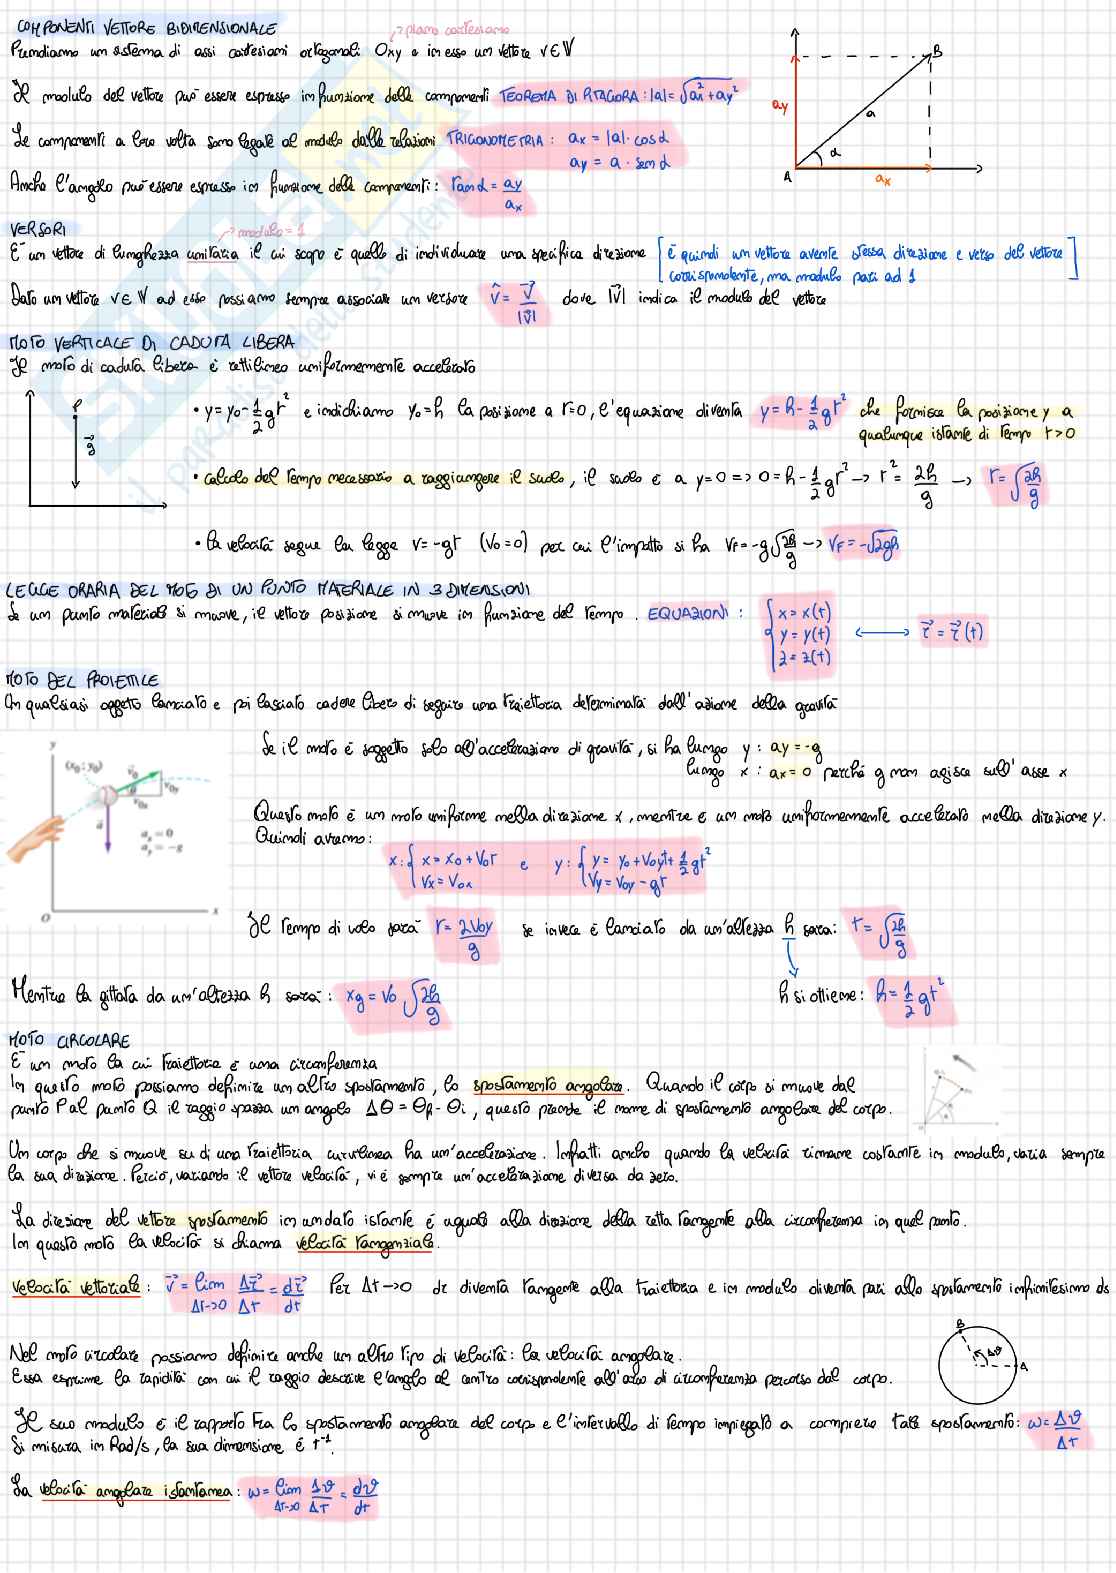 COMPONENTI VETTORE BIDIMENSIONALE
→ piano cartesiano
Prendiamo un sistema di assi cartesiani ortogonali Oxy e in esso un vettore v∈V
Il modulo del vettore può essere espresso in funzione delle componenti TEOREMA DI PITAGORA: |a| = √ax² + ay²
Le componenti a loro volta sono legate al modulo dalle relazioni TRIGONOMETRIA: ax = |a|· cosα
ay = a · senα
Anche l'angolo può essere espresso in funzione delle componenti: Tanα = ay/ax
ay
a
α
A
B
ax
VERSORI
→ modulo = 1
È un vettore di lunghezza unitaria il cui scopo è quello di individuare una specifica direzione [è quindi un vettore avente stessa direzione e verso del vettore
corrispondente, ma modulo pari ad 1]
Dato un vettore v∈V ad esso possiamo sempre associare un versore v̂ = v⃗/|v⃗| dove |v⃗| indica il modulo del vettore
MOTO VERTICALE DI CADUTA LIBERA
Il moto di caduta libera è rettilineo uniformemente accelerato
P
g⃗
• y = y₀ - 1/2 gt² e indichiamo y₀ = h la posizione a t=0, l'equazione diventa y = h - 1/2 gt² che fornisce la posizione y a
qualunque istante di tempo t>0
• calcolo del tempo necessario a raggiungere il suolo, il suolo è a y=0 => 0 = h - 1/2 gt² → t² = 2h/g → t = √2h/g
• la velocità segue la legge v = -gt (v₀=0) per cui l'impatto si ha VF = -g√2h/g → VF = -√2gh
LEGGE ORARIA DEL MOTO DI UN PUNTO MATERIALE IN 3 DIMENSIONI
Se un punto materiale si muove, il vettore posizione si muove in funzione del tempo. EQUAZIONI: { x = x(t)
y = y(t) ⟷ r⃗ = r⃗(t)
z = z(t)
MOTO DEL PROIETTILE
Un qualsiasi oggetto lanciato e poi lasciato cadere libero di seguire una traiettoria determinata dall'azione della gravità
y
(x₀; y₀)
v⃗₀
θ
v₀y
v₀x
a⃗
aₓ = 0
a_y = -g
O
x
Se il moto è soggetto solo all'accelerazione di gravità, si ha lungo y: ay = -g
lungo x: ax = 0 perché g non agisce sull'asse x
Questo moto è un moto uniforme nella direzione x, mentre è un moto uniformemente accelerato nella direzione y.
Quindi avremo:
x: { x = x₀ + v₀t e y: { y = y₀ + v₀yt + 1/2 gt²
Vx = V₀x Vy = V₀y - gt
Il tempo di volo sarà t = 2V₀y/g se invece è lanciato da un'altezza h sarà: t = √2h/g
Mentre la gittata da un'altezza h sarà: xg = V₀ √2h/g
h si ottiene: h = 1/2 gt²
MOTO CIRCOLARE
È un moto la cui traiettoria è una circonferenza
In questo moto possiamo definire un altro spostamento, lo spostamento angolare. Quando il corpo si muove dal
punto P al punto Q il raggio spazza un angolo Δθ = θf - θi, questo prende il nome di spostamento angolare del corpo.
Un corpo che si muove su di una traiettoria curvilinea ha un'accelerazione. Infatti anche quando la velocità rimane costante in modulo, varia sempre
la sua direzione. Perciò, variando il vettore velocità, vi è sempre un'accelerazione diversa da zero.
La direzione del vettore spostamento in un dato istante è uguale alla direzione della retta tangente alla circonferenza in quel punto.
In questo moto la velocità si chiama velocità tangenziale.
Velocità vettoriale: v⃗ = lim Δt→0 Δr⃗/Δt = dr⃗/dt Per Δt→0 dr diventa tangente alla traiettoria e in modulo diventa pari allo spostamento infinitesimo ds
Nel moto circolare possiamo definire anche un altro tipo di velocità: la velocità angolare.
Essa esprime la rapidità con cui il raggio descrive l'angolo al centro corrispondente all'arco di circonferenza percorso dal corpo.
B
Δϑ
A
Il suo modulo è il rapporto tra lo spostamento angolare del corpo e l'intervallo di tempo impiegato a compiere tale spostamento: ω = Δϑ/Δt
Si misura in Rad/s, la sua dimensione è t⁻¹.
La velocità angolare istantanea: ω = lim Δt→0 Δϑ/Δt = dϑ/dt